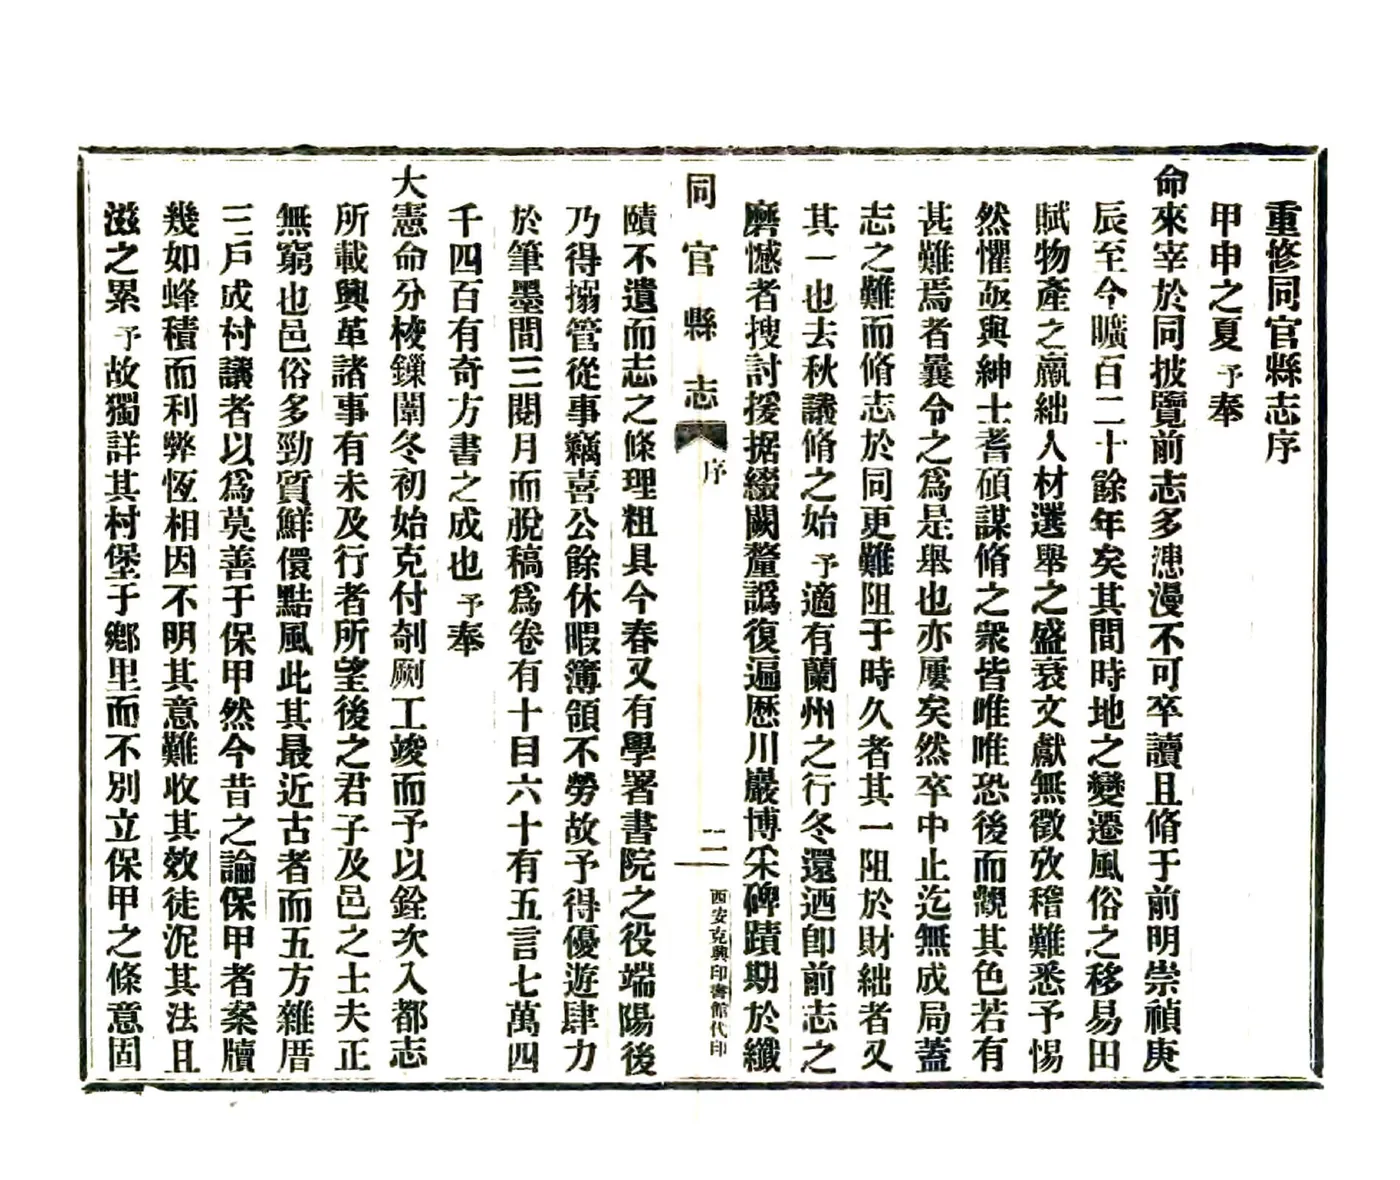 重修同官縣志序
甲申之夏予奉
命來宰於同披覽前志多漶漫不可卒讀且脩于前明崇禎庚
辰至今曠百二十餘年矣其間時地之變遷風俗之移易田
賦物產之贏絀人材選舉之盛衰文獻無徵攷稽難悉予惕
然懼亟與紳士耆碩謀脩之衆皆唯唯恐後而觀其色若有
甚難焉者曩令之爲是舉也亦屢矣然卒中止迄無成局蓋
志之難而脩志於同更難阻于時久者其一阻於財絀者又
其一也去秋議脩之始予適有蘭州之行冬還迺卽前志之
磨憾者搜討援据綴闕釐譌復遍歷川巖博采碑蹟期於纖
同官縣志
序
二
西安克興印書館代印
賾不遺而志之條理粗具今春又有學署書院之役端陽後
乃得搦管從事竊喜公餘休暇簿領不勞故予得優遊肆力
於筆墨間三閱月而脫稿爲卷有十目六十有五言七萬四
千四百有奇方書之成也予奉
大憲命分校鏁闈冬初始克付剞劂工竣而予以銓次入都志
所載興革諸事有未及行者所望後之君子及邑之士夫正
無窮也邑俗多勁質鮮儇黠風此其最近古者而五方雜厝
三戶成村議者以爲莫善于保甲然今昔之論保甲者案牘
幾如蜂積而利弊恆相因不明其意難收其效徒泥其法且
滋之累予故獨詳其村堡于鄉里而不別立保甲之條意固